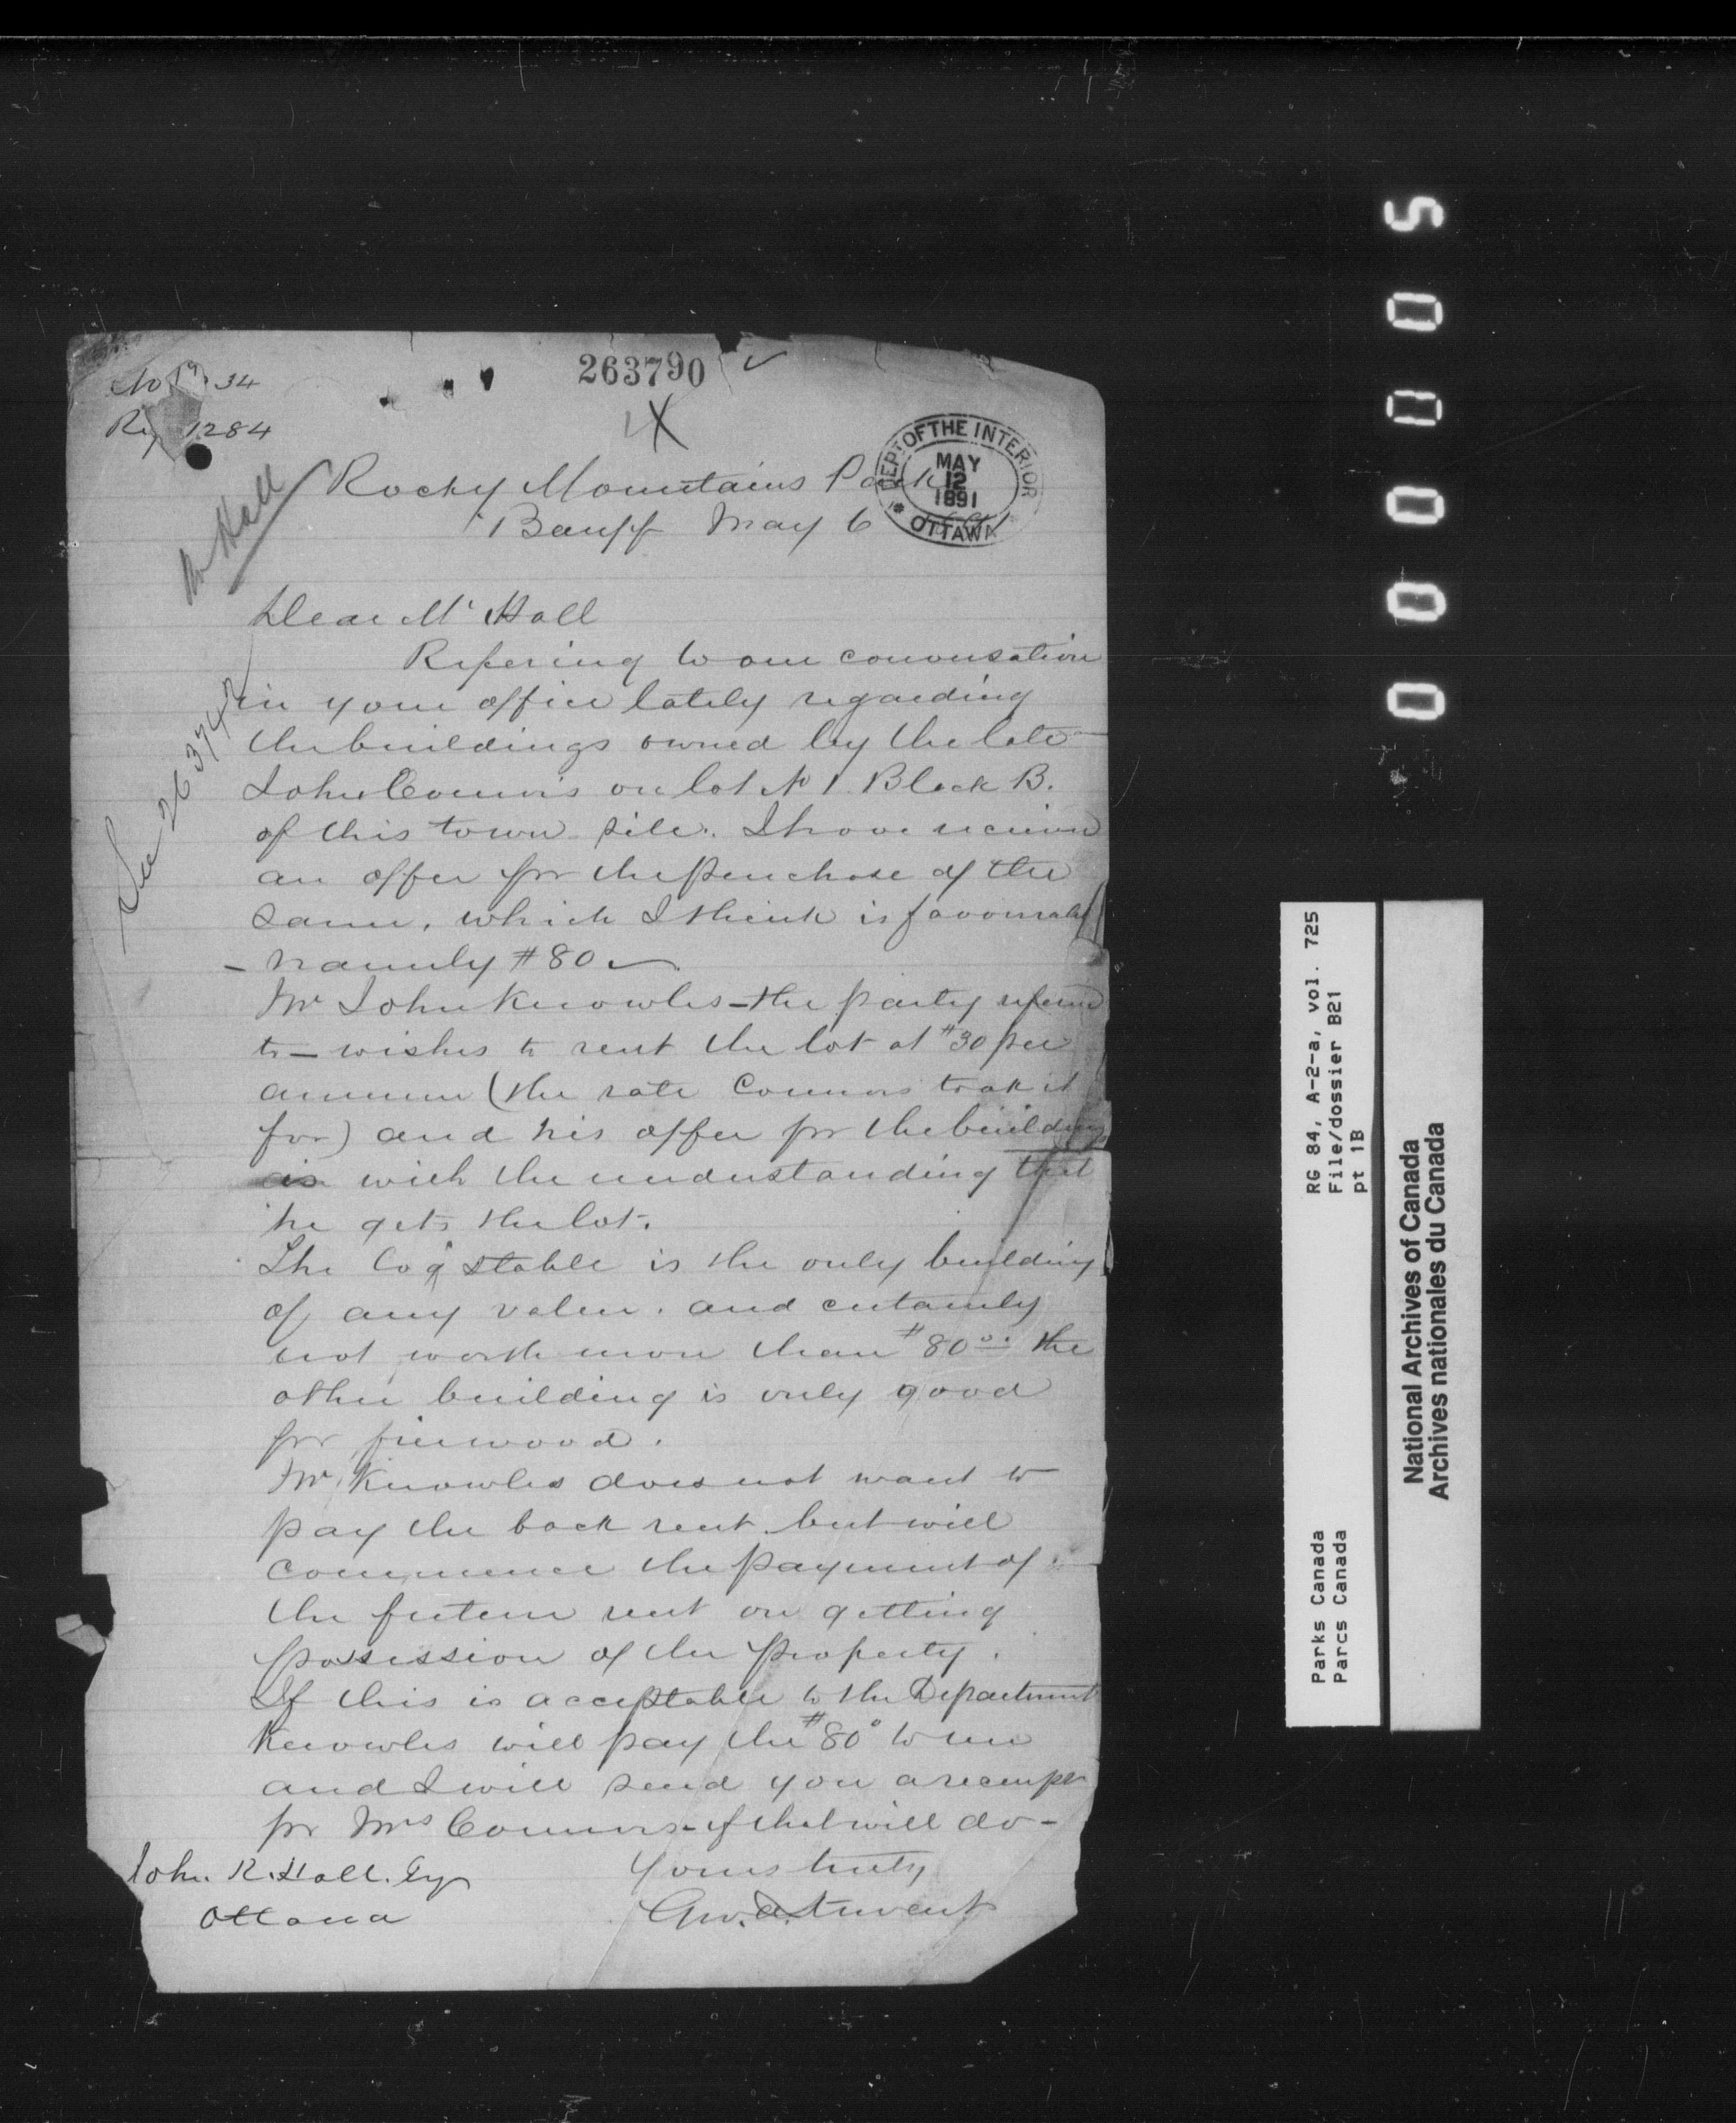 263790
No 34
Reg 1284
DEPT OF THE INTERIOR
MAY
12
1891
OTTAWA
Mr Hall
Rocky Mountains Park
Banff May 6 1891
Dear Mr Hall
Refering to our conversation
in your office lately regarding
the buildings owned by the late
John Connors on lot No 1 Block B.
of this town site. I have receivd
an offer for the purchase of the
same, which I think is favourable
- namely $80
Mr John Knowles - the party referrd
to - wishes to rent the lot at $30 per
annum (the rate Connors took it
for) and his offer for the buildings
is with the understanding that
he gets the lot.
The log stable is the only building
of any value. and certainly
not worth more than $80.00 the
other building is only good
for firewood.
Mr Knowles does not want to
pay the back rent but will
commence the payment of
the future rent on getting
possession of the property.
If this is acceptable to the Department
Knowles will pay the $80 to me
and I will send you a receipt
for Mrs Connors - if that will do -
Yours truly
Geo. A. Stewart
John R. Hall. Esq
Ottawa
See 26374
00005
RG 84, A-2-a, vol. 725
File/dossier B21
pt 1B
Parks Canada
Parcs Canada
National Archives of Canada
Archives nationales du Canada